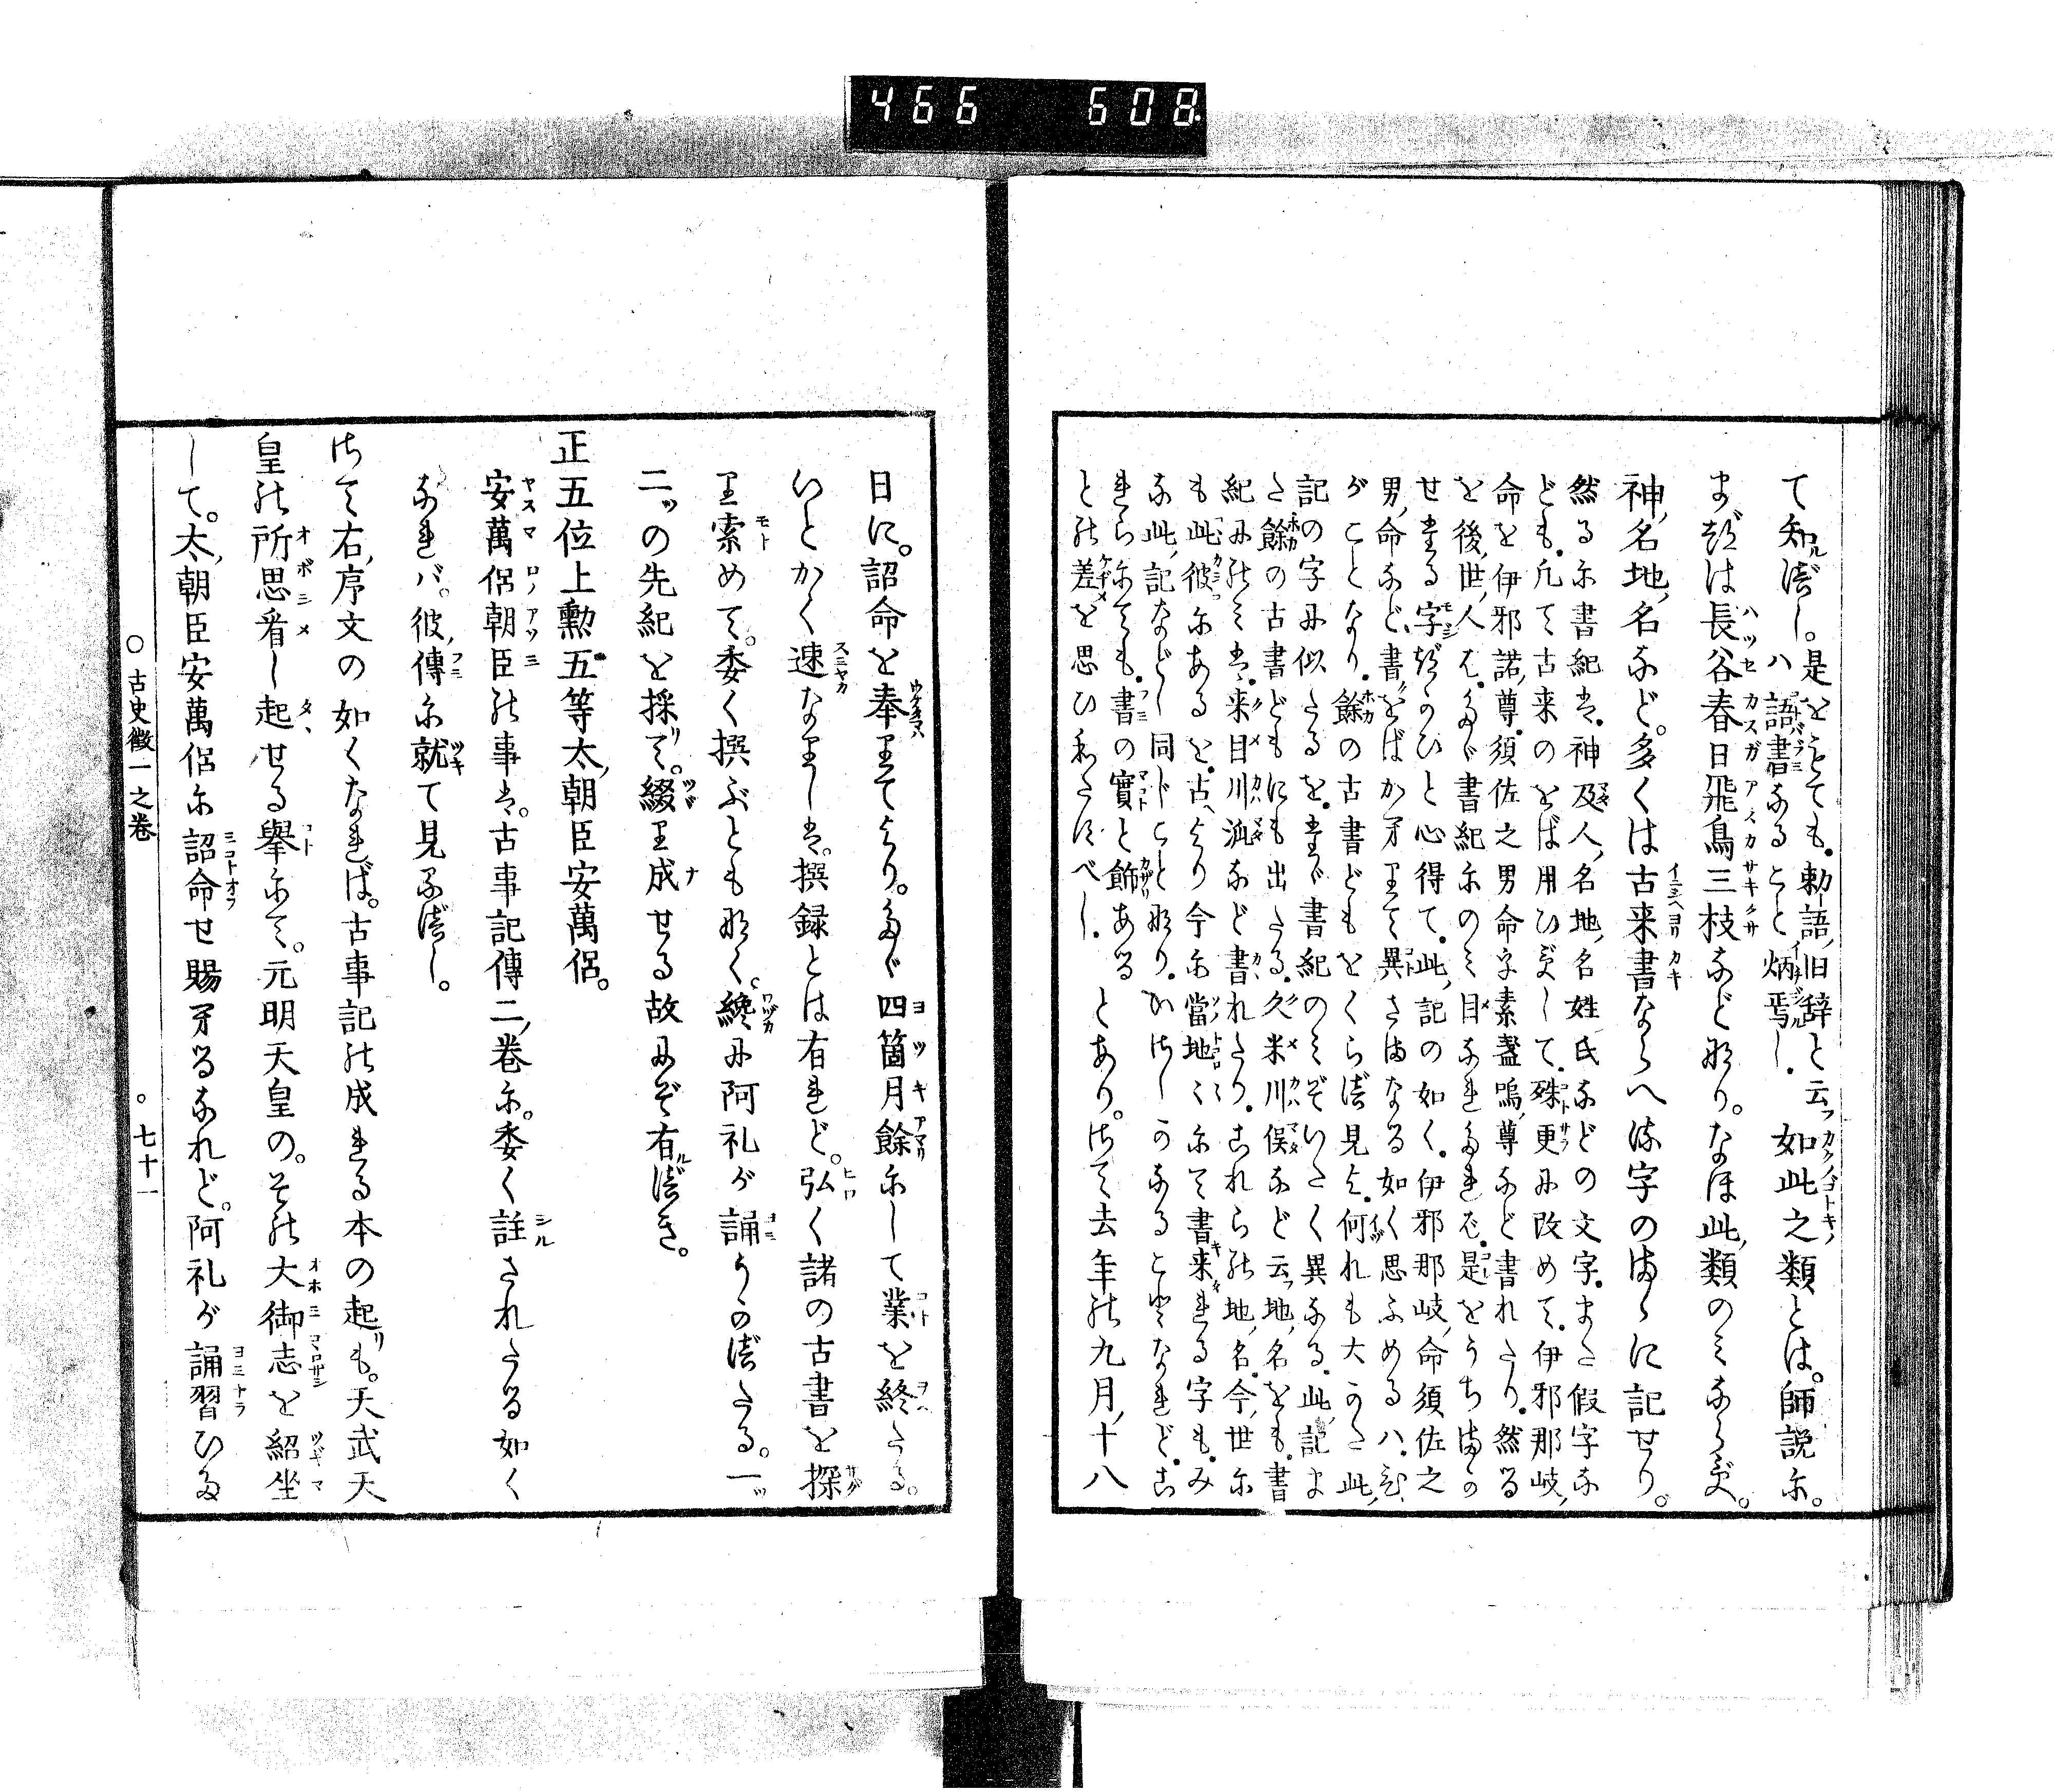 466 608
て知べし。是をもても。勅語旧辞と云フ如此之類とは。師説に。
ハ語書なること炳焉し。
まづは長谷春日飛鳥三枝など是なり。なほ此類のみならず。
神名地名など。多くは古来書ならへる字のまゝに記せり。
然るに書紀は。神及人名地名姓氏などの文字。また假字な
ども。凡て古来のをば用ひずして。殊更に改めて。伊邪那岐
命を伊邪諾尊。須佐之男命字素盞嗚尊など書れたり。然る
を後世人は。たゞ書紀にのみ目なれたれば。是をうちまかの
せたる字ぞのひと心得て。此記の如く。伊邪那岐命須佐之
男命など書をばかへりて異さまなる如く思ふめるハ。ひ
がことなり。餘の古書どもをくらべ見よ。何れも大かた此
記の字に似たるを。たゞ書紀のみぞいたく異なる。此記ま
た餘の古書どもにも出たる。久米川俣など云フ地名をも。書
紀にのみは。来目川派など書れたり。これらの地名。今世に
も此彼にあるを。古へより今に當地〻にて書来れる字も。み
な此記などし同じことなり。かばしのなることどなれど。こ
れらにても。書の實と飾ある
との差を思ひわたすべし。とあり。さて去年の九月十八
日に。詔命を奉りてより。たゞ四箇月餘にして業を終たる。
いとかく速なりしは。撰録とは有れど。弘く諸の古書を探
り索めて。委く撰ぶとも無く。纔に阿礼が誦うのべたる。一ツ
二ツの先紀を採て。綴り成せる故にぞ有ルべき。
正五位上勲五等太朝臣安萬侶。
安萬侶朝臣の事は。古事記傳二巻に。委く註されたる如く
なれバ。彼傳に就て見るべし。
さて右序文の如くなれば。古事記の成れる本の起リも。天武天
皇の所思看し起せる擧にて。元明天皇の。その大御志を紹坐
して。太朝臣安萬侶に詔命せ賜へるなれど。阿礼が誦習ひた
○古史徴一之巻 ○七十一